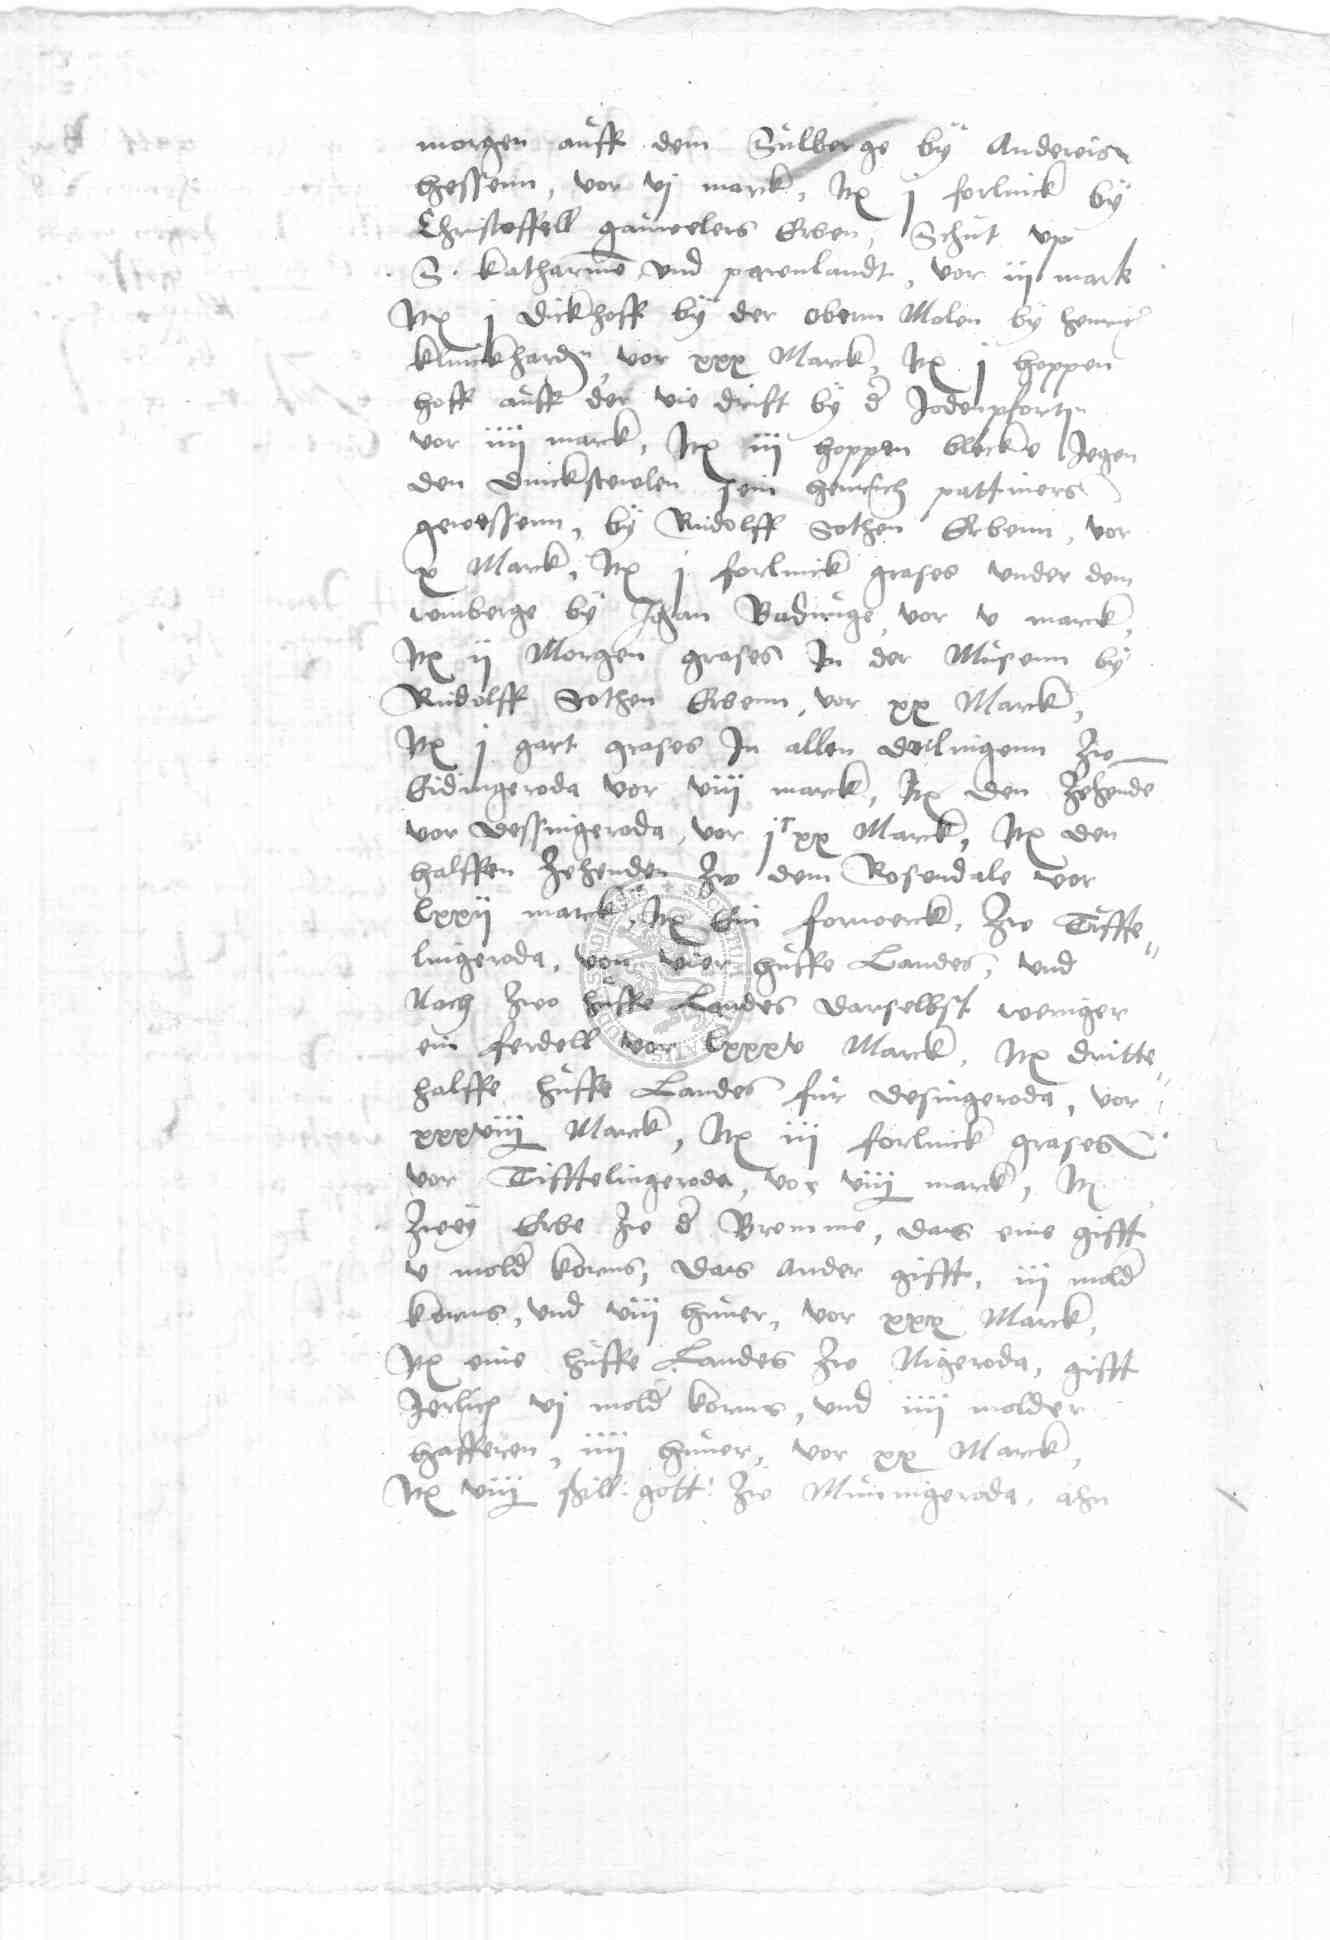 morgen auff dem Sulberge by Andereis
hessenn, vor vj marck, Itz j forlinck by
Christoffell gauwelers Erben, Schut vp
S. Katharine vnd parenlandt, vor iij mark
Itz j dickhoff by der obernn Molen by henric
klinckhardn, vor xxx Marck, Itz j hoppen
hoff auff der vie drift by d Jodenpfortn
vor iiij marck, Itz iij hoppen blecke Jegen
den sein heinrich pattiners
gewessenn, by Rudolff Sothen Erbenn, vor
x Marck, Itz j forlinck grases vnder dem
winberge by Jhan Badunge, vor v marck,
Itz ij Morgen grases In der Musenn by
Rudolff Sothen Erbenn, vor xx Marck,
Itz j gart grases In allen deilingenn zw
Eidingeroda vor viij marck, Itz den Zehende
vor dessingeroda, vor jc xx Marck, Itz den
halffen Zehenden zw dem Rosendale vor
lxxij marck, Itz Ein forwerck, zw Tiffte"
lingeroda, von vier huffe Landes, vnd
Noch zwo huffe Landes darselbst weniger
ein ferdell vor lxxxv Marck, Itz dritte"
halffe huffe Landes fur desingeroda, vor
xxxviij Marck, Itz iij forlinck grases
vor Tifftelingeroda, vor viij marck, Itz
zwey Erbe zw d Bremme, dars eine gifft
v mold korns, dars ander gifft, iij mold
korns, vnd viij huner, vor xxx Marck,
Itz eine huffe Landes zw Nigeroda, gifft
Jerlich vj mold korns, vnd iiij molder
hafferen, iiij huner, vor xx Marck,
Itz viij schill: gott: zw Minnigeroda, ahn